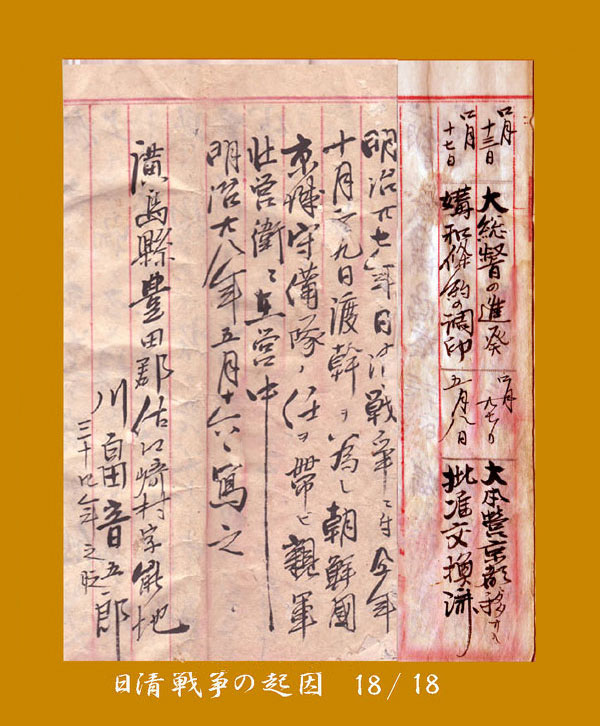 四月十三日 大総督の進発
四月 大本営京都
四月十七日 媾和條約の調印
五月八日 批准交換済
明治廿七年日清戦争ニ付今年
十月二九日渡幹ヲ為し朝鮮國
京城守備隊ノ任ヲ帯ヒ親軍
壮営衛ニ在営中
明治廿八年五月十六日寫之
廣島縣豊田郡佐江崎村字能地
川畠音五郎
三十 年之
日清戦争の起因 18/18